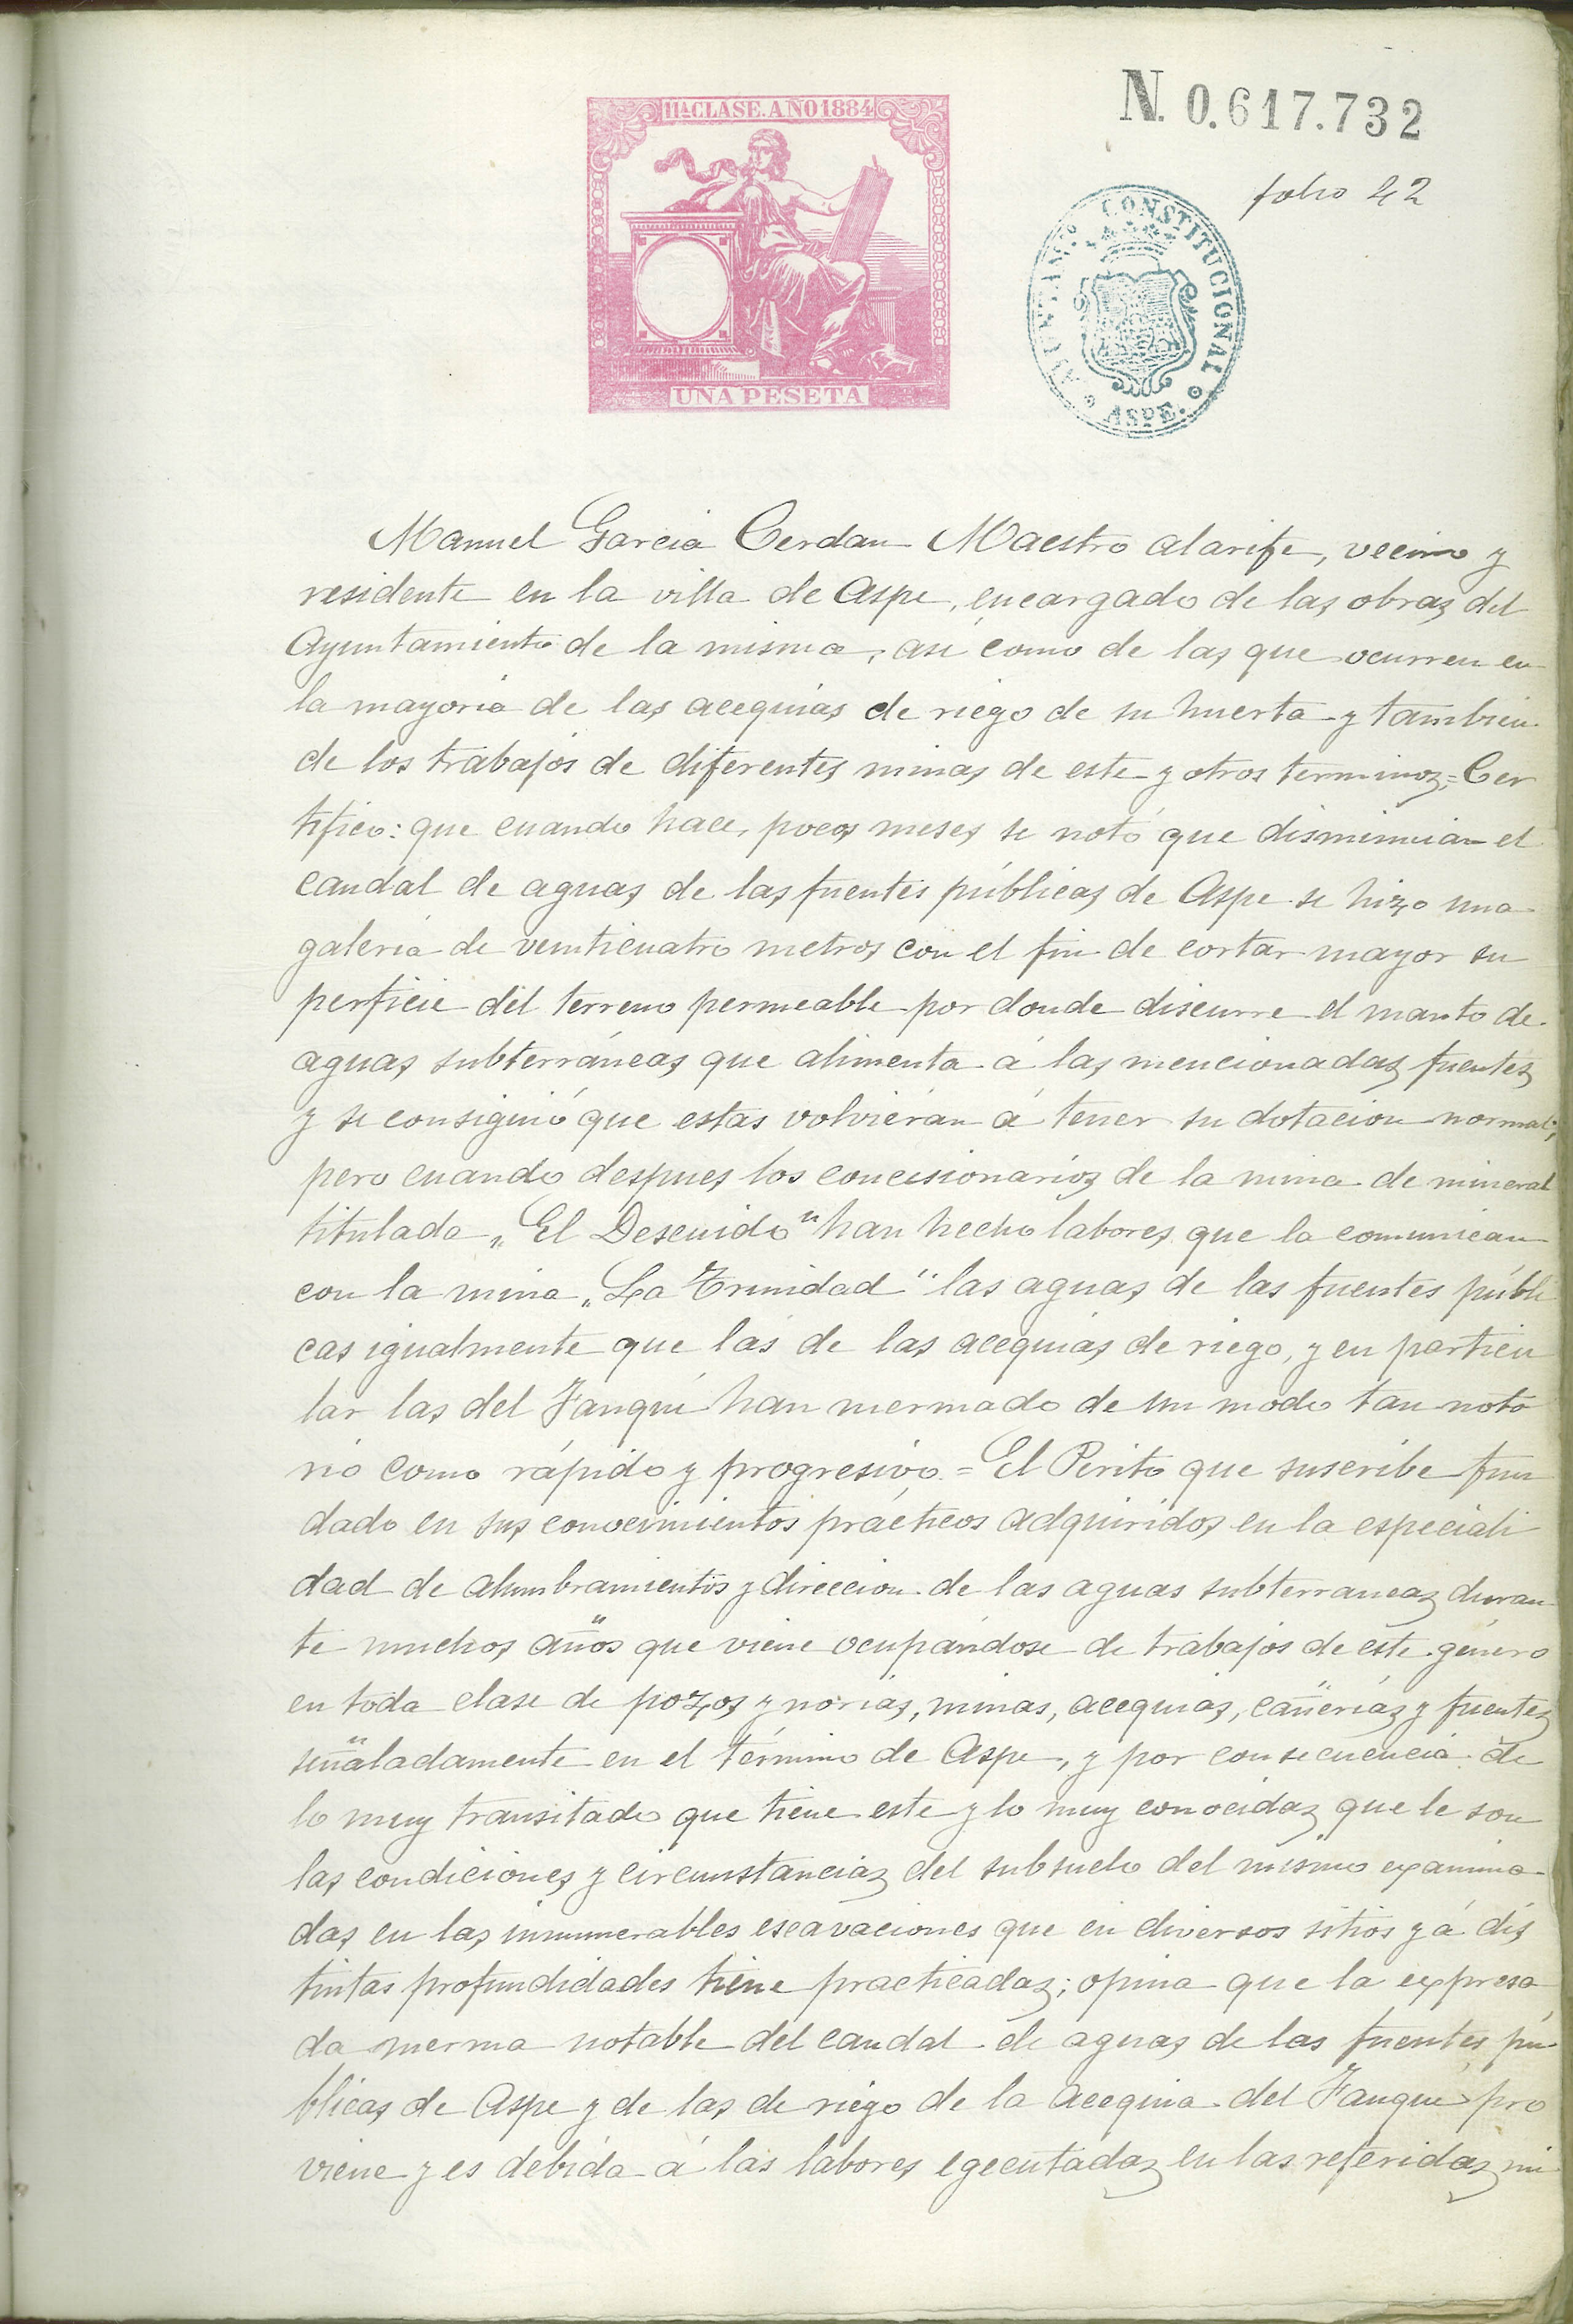 11ª CLASE. AÑO 1884
N. 0.617.732
folio 42
AYUNTAMTO CONSTITUCIONAL
ASPE.
UNA PESETA
Manuel Garcia Cerdan Maestro alarife, vecino y
residente en la villa de Aspe, encargado de las obras del
Ayuntamiento de la misma, asi como de las que ocurren en
la mayoria de las acequias de riego de su huerta y tambien
de los trabajos de diferentes minas de este y otros terminos,= Cer
tifico: que cuando hace, pocos meses se notó que disminuian el
caudal de aguas de las fuentes públicas de Aspe se hizo una
galeria de venticuatro metros con el fin de cortar mayor su
perficie del terreno permeable por donde discurre el manto de
aguas subterráneas que alimenta á las mencionadas fuentes
y se consiguió que estas volvieran á tener su dotacion normal;
pero cuando despues los concesionarios de la mina de mineral
titulada „El Descuido" han hecho labores que la comunican
con la mina „La Trinidad" las aguas de las fuentes públi
cas igualmente que las de las acequias de riego, y en particu
lar las del Fanqui han mermado de un modo tan noto
rio como rápido y progresivo.= El Perito que suscribe fun
dado en sus conocimientos prácticos adquiridos en la especiali
dad de alumbramientos y direccion de las aguas subterraneas duran
te muchos años que viene ocupándose de trabajos de este género
en toda clase de pozos y norias, minas, acequias, cañerías y fuentes
señaladamente en el término de Aspe, y por consecuencia de
lo muy transitado que tiene este y lo muy conocidas que le son
las condiciones y circunstancias del subsuelo del mismo examina-
das en las innumerables escavaciones que en diversos sitios y á dis
tintas profundidades tiene practicadas; opina que la expresa
da merma notable del caudal de aguas de las fuentes pú-
blicas de Aspe y de las de riego de la acequia del Fanqui pro
viene y es debida á las labores egecutadas en las referidas mi